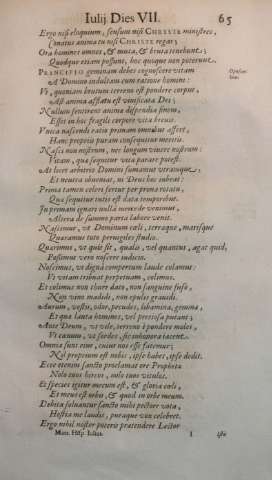 Iulij Dies VII. 65
Ergo nisi eloquium, sensum nisi CHRISTE ministres,
Conatus animæ tu nisi CHRISTE regas;
Ora hominum omnes, & muta, & bruta tenebunt;
Quodque etiam possunt, hoc quoque non poterunt.
PRINCIPIO geminam debes cognoscere vitam
A Domino indultam cum ratione homini:
Vt, quoniam brutum terreno est pondere corpus,
Ast anima afflatu est vivificata Dei;
Nullum sentirent animæ dispendia sensus,
Essit in hoc fragili corpore vita brevis.
Vnica nascendi ratio primam omnibus affert,
Hanc propria puram consequitur meritis.
Nasci non nostrum, nec longum vivere nostrum:
Vitam, qua sequitur vita parare potest.
At licet arbitrio Domini sumamus utramque;
Et neutra obveniat, ni Deus hoc iubeat:
Prima tamen celeri fertur per prona rotatu,
Qua sequitur tutis est data temporibus.
In primam ignari nulla mercede venimus,
Altera de summo parta labore venit.
Nascimur, ut Dominum cæli, terraque, marisque
Quæramus toto pervigiles studio.
Quærimus, ut quis sit, qualis, vel quantus, agat quid,
Possimus vero noscere iudicio.
Noscimus, ut digna compertum laude colamus:
Vt vitam tribuat perpetuam, colimus.
Et colimus non thure dato, non sanguine fuso,
Non vino madidi, non epulis gravidi.
Aurum, vestis, odor, pecudes, libamina, gemma,
Et qua lauta homines, vel pretiosa putant;
Ante Deum, ut vile, terreno & pondere moles,
Vt cænum, ut sordes, sic inhonora iacent.
Omnia sunt eius, cuius nos esse fatemur;
Nil proprium est nobis, ipse habet, ipse dedit.
Ecce etenim sancto proclamat ore Propheta
Nolo tuos hircos, nolo tuos vitulos.
Et species igitur mecum est, & gloria cæli,
Et meus est orbis, & quod in orbe meum.
Debita solvantur sancto mihi pectore vota,
Hostia me laudis, puraque vox celebret.
Ergo nihil noster poterit prætendere Lector
Mart. Hisp. Iulius. I iste